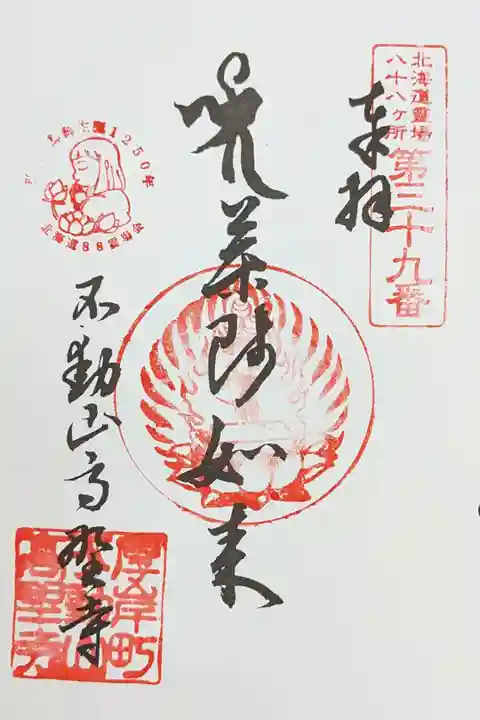 北海道靈場
八十八ヶ所
第三十九番
奉拝
薬師如来
生誕1250年
北海道88霊場会
不動山高聖寺
厚岸町
不動山
高聖寺